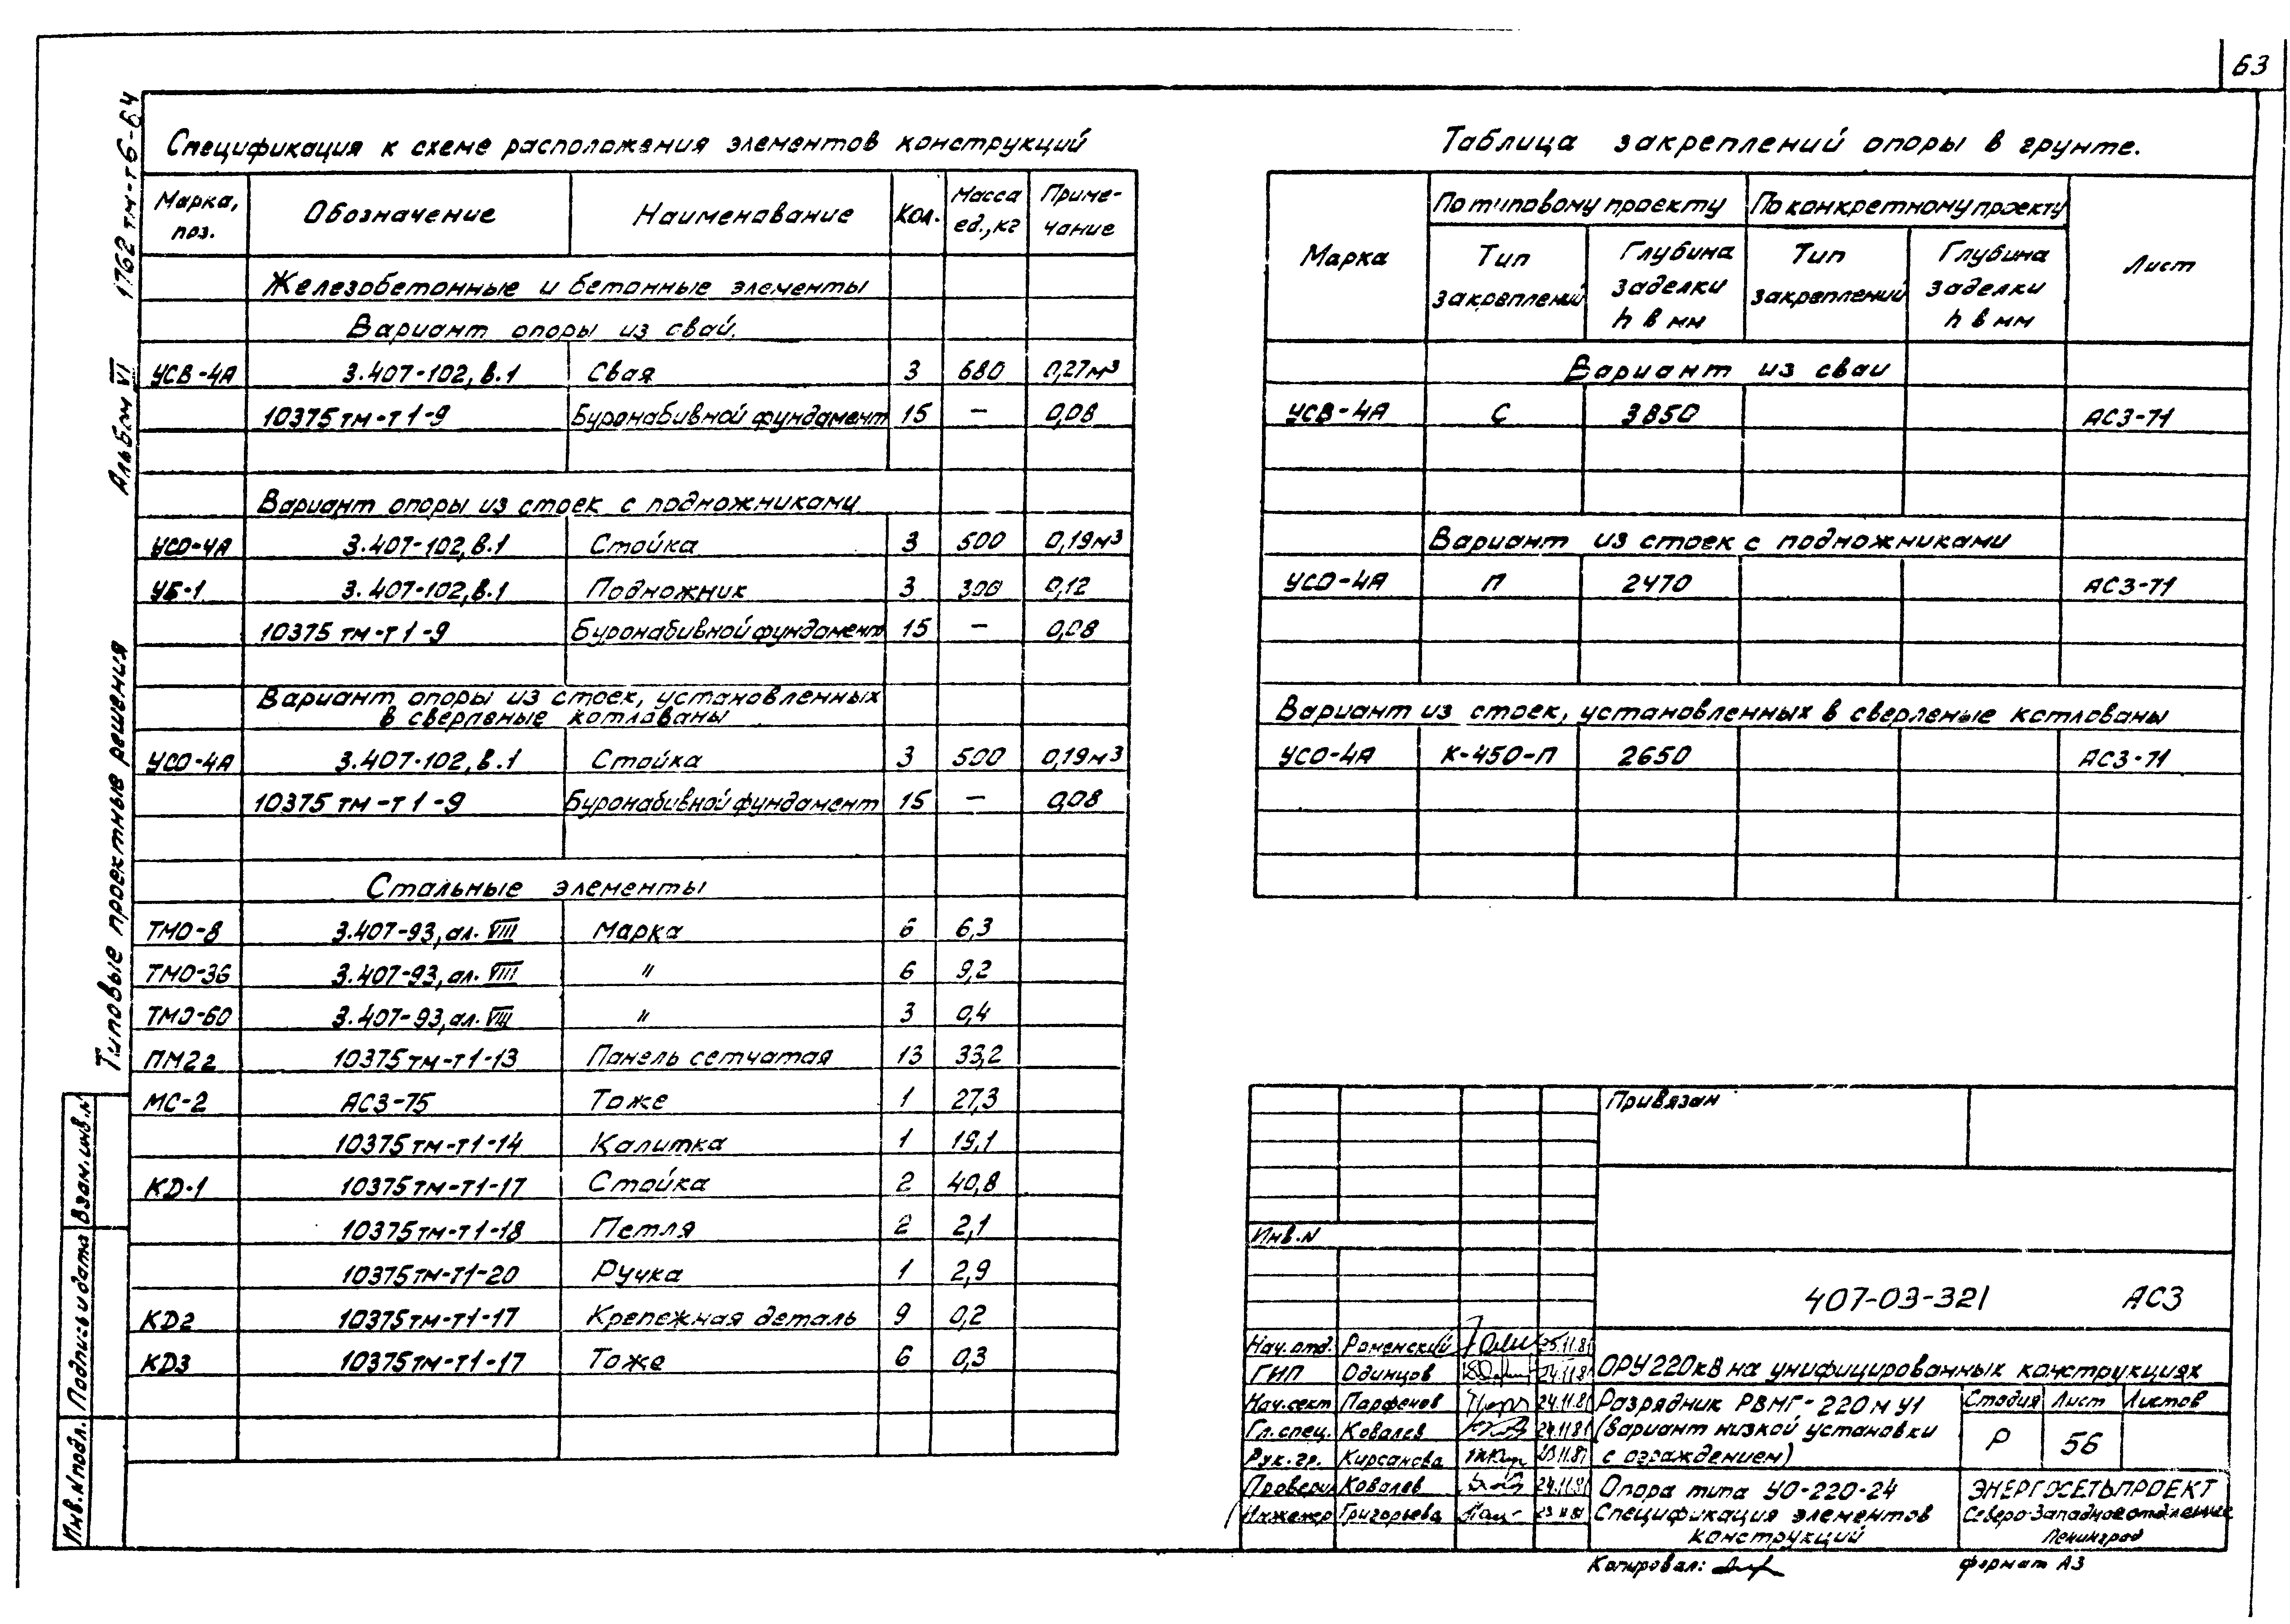 63
1762 тм-т6-64
Альбом VI
Типовые проектные решения
Взам. инв. №
Подпись и дата
Инв. № подл.
Спецификация к схеме расположения элементов конструкций
Марка, поз. Обозначение Наименование Кол. Масса ед., кг Приме-чание
Железобетонные и бетонные элементы
Вариант опоры из свай.
УСВ-4А 3.407-102, в.1 Свая 3 680 0,27м³
10375тм-т1-9 Буронабивной фундамент 15 — 0,08
Вариант опоры из стоек с подножниками
УСО-4А 3.407-102, в.1 Стойка 3 500 0,19м³
УБ-1 3.407-102, в.1 Подножник 3 300 0,12
10375тм-т1-9 Буронабивной фундамент 15 — 0,08
Вариант опоры из стоек, установленных
в сверленые котлованы
УСО-4А 3.407-102, в.1 Стойка 3 500 0,19м³
10375тм-т1-9 Буронабивной фундамент 15 — 0,08
Стальные элементы
ТМО-8 3.407-93, ал. VIII Марка 6 6,3
ТМО-36 3.407-93, ал. VIII " 6 9,2
ТМО-60 3.407-93, ал. VIII " 3 0,4
ПМ22 10375тм-т1-13 Панель сетчатая 13 33,2
МС-2 АС3-75 Тоже 1 27,3
10375тм-т1-14 Калитка 1 19,1
КД-1 10375тм-т1-17 Стойка 2 40,8
10375тм-т1-18 Петля 2 2,1
10375тм-т1-20 Ручка 1 2,9
КД2 10375тм-т1-17 Крепежная деталь 9 0,2
КД3 10375тм-т1-17 Тоже 6 0,3
Таблица закреплений опоры в грунте.
Марка По типовому проекту По конкретному проекту Лист
Тип закреплений Глубина заделки h в мм Тип закреплений Глубина заделки h в мм
Вариант из сваи
УСВ-4А С 3850 АС3-71
Вариант из стоек с подножниками
УСО-4А П 2470 АС3-71
Вариант из стоек, установленных в сверленые котлованы
УСО-4А К-450-П 2650 АС3-71
Привязан
Инв. N
407-03-321 АС3
Нач. отд. Роменский 25.11.81
ГИП Одинцов 24.11.81
ОРУ 220кВ на унифицированных конструкциях
Нач. сект Парфенов 24.11.81
Гл. спец. Ковалев 24.11.81
Рук. гр. Кирсанова 23.11.81
Провери Ковалев 24.11.81
Инженер Григорьева 23.11.81
Разрядник РВМГ-220 м У1
(вариант низкой установки
с ограждением)
Стадия Лист Листов
Р 56
Опора типа УО-220-24
Спецификация элементов
конструкций
ЭНЕРГОСЕТЬПРОЕКТ
Северо-Западное отделение
Ленинград
Копировал:
формат А3